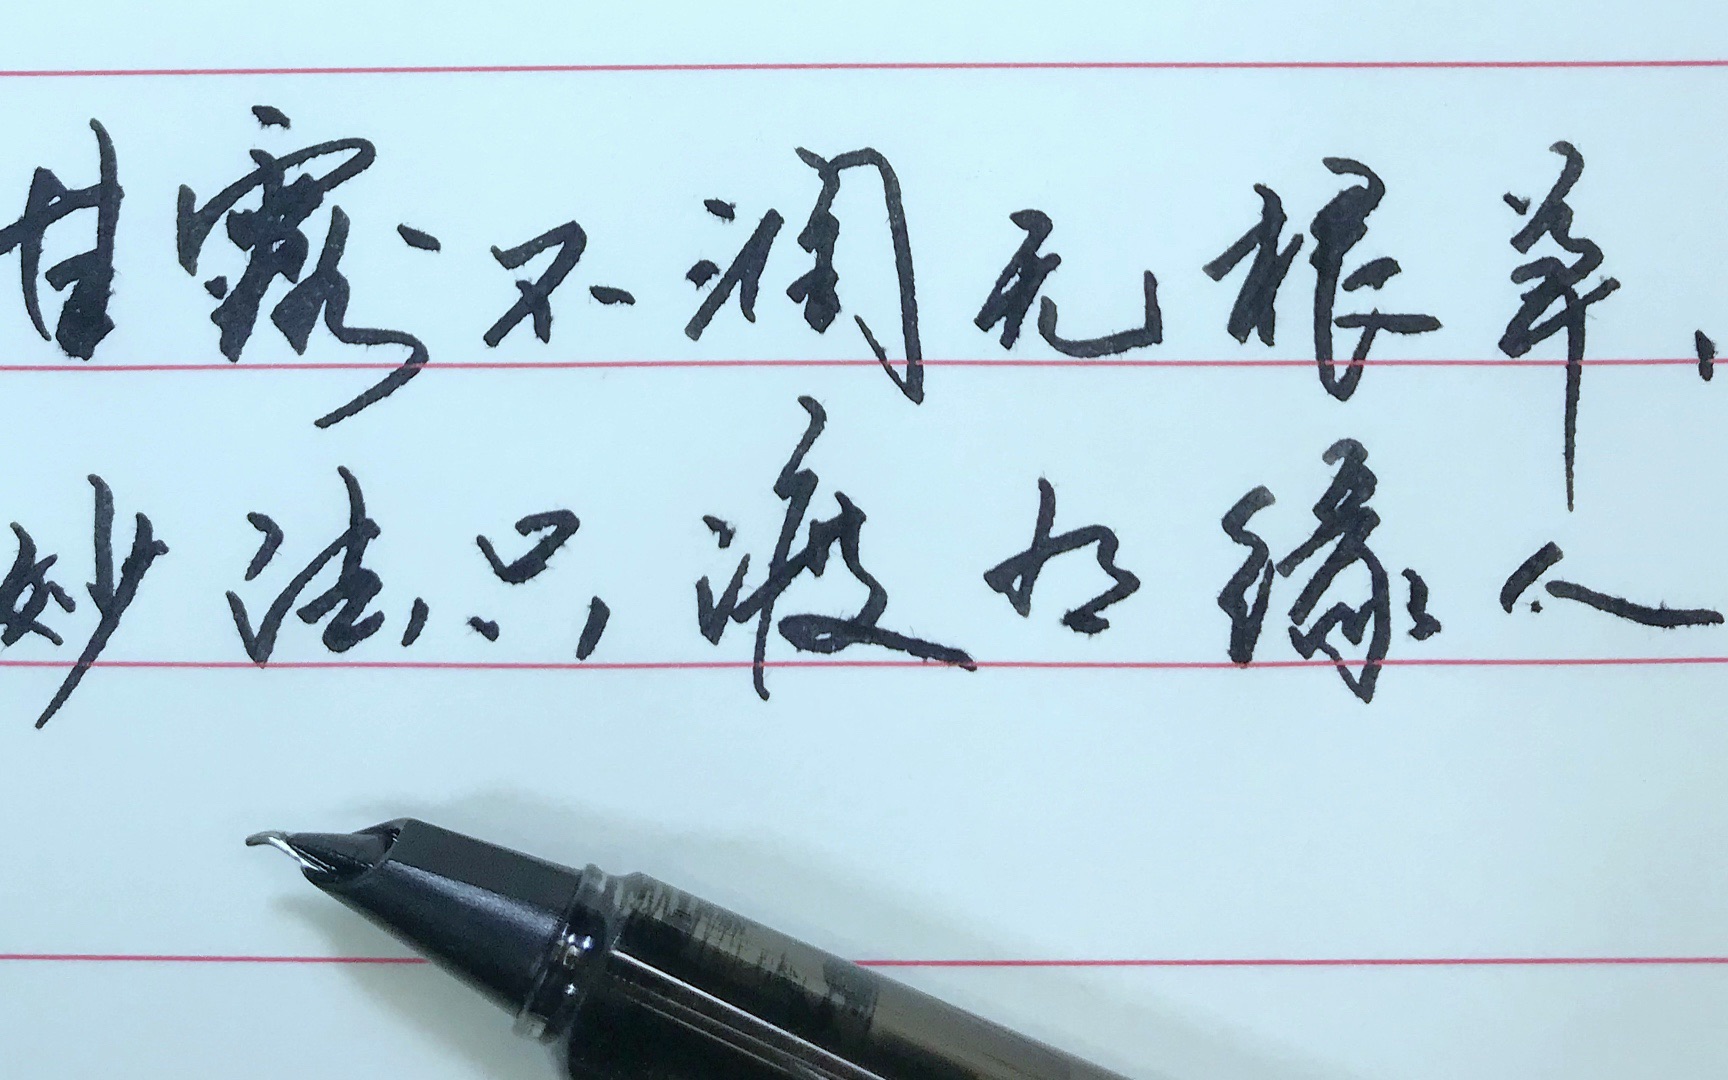 甘露不润无根草，
妙法只渡有缘人